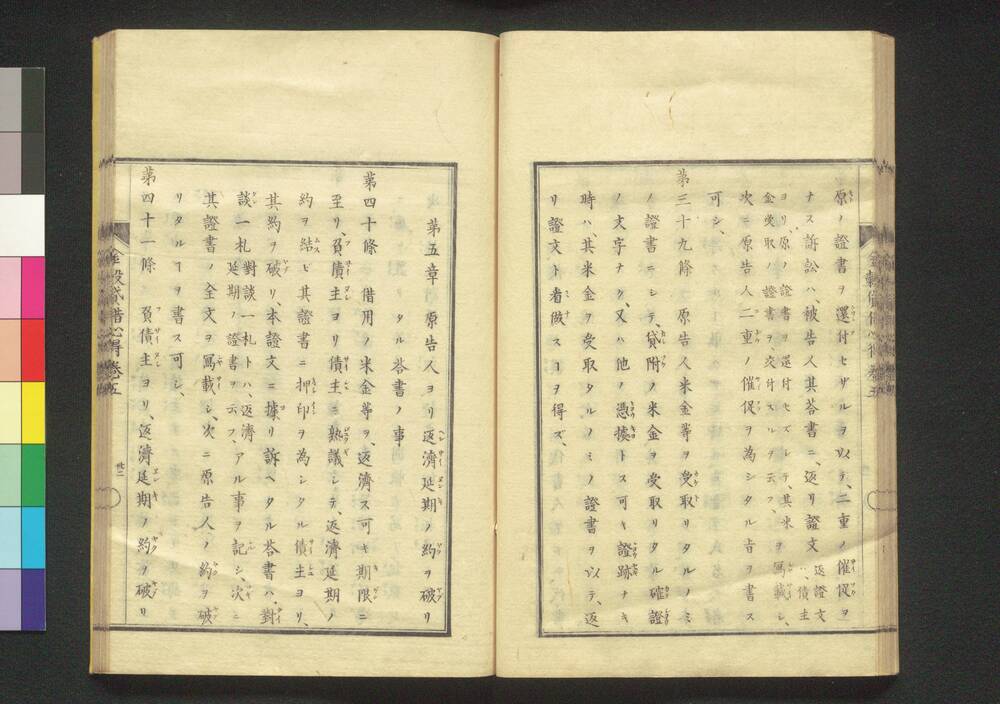 原ノ證書ヲ還付セザルヲ以テ、二重ノ催促ヲ
ナス訴訟ハ、被告人其荅書ニ、返リ證文 返證文ハ、債主
ヨリ、原ノ證書ヲ還付セズシテ、其米
金受取ノ證書ヲ交付スルヲ云フ、ヲ寫載シ、
次ニ原告人二重ノ催促ヲ為シタル旨ヲ書ス
可シ、
第三十九條 原告人米金等ヲ受取リタルノミ
ノ證書ニシテ、貸附ノ米金ヲ受取リタル確證
ノ文字ナク、又ハ他ノ憑據トス可キ證跡ナキ
時ハ、其米金ヲ受取タルノミノ證書ヲ以テ、返
リ證文ト看做スヿヲ得ズ、
第五章 原告人ヨリ返濟延期ノ約ヲ破リ
タル荅書ノ事
第四十條 借用ノ米金等ヲ、返濟ス可キ期限ニ
至リ、負債主ヨリ債主ニ熟議シテ、返濟延期ノ
約ヲ結ビ其證書ニ押印ヲ為シタル債主ヨリ、
其約ヲ破リ、本證文ニ據リ訴ヘタル荅書ハ、對
談一札 對談一札トハ、返濟延期ノ證書ヲ云フ、アル事ヲ記シ、次ニ
其證書ノ全文ヲ寫載シ、次ニ原告人ノ約ヲ破
リタルヿヲ書ス可シ、
第四十一條 負債主ヨリ、返濟延期ノ約ヲ破リ
金穀貸借心得 卷五
廿二